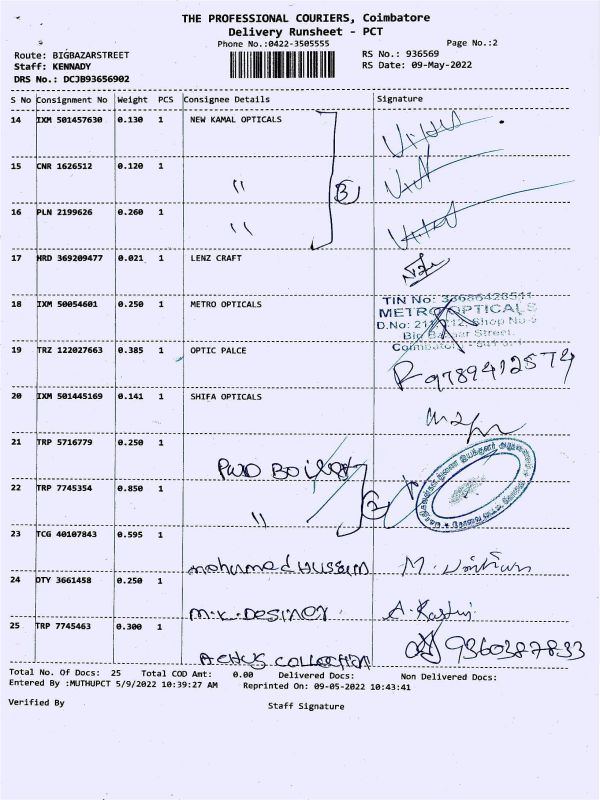 THE PROFESSIONAL COURIERS, Coimbatore
Delivery Runsheet - PCT
Phone No.:0422-3505555
Page No.:2
Route: BIGBAZARSTREET
RS No.: 936569
Staff: KENNADY
RS Date: 09-May-2022
DRS No.: DCJB93656902
S No Consignment No Weight PCS Consignee Details Signature
14 IXM 501457630 0.130 1 NEW KAMAL OPTICALS
15 CNR 1626512 0.120 1 "
3
16 PLN 2199626 0.260 1 "
17 HRD 369209477 0.021 1 LENZ CRAFT
TIN No: 33686428541
18 IXM 50054601 0.250 1 METRO OPTICALS
METRO OPTICALS
D.No: Shop No
Big Bazaar Street,
19 TRZ 122027663 0.385 1 OPTIC PALCE
Coimbatore
9789412574
20 IXM 501445169 0.141 1 SHIFA OPTICALS
21 TRP 5716779 0.250 1
PWD
22 TRP 7745354 0.850 1
" 2
23 TCG 40107843 0.595 1
mohamed Hussain M.
24 DTY 3661458 0.250 1
M.K. DESINER A.
25 TRP 7745463 0.300 1
ACHUS COLLECTION 9360387833
Total No. Of Docs: 25 Total COD Amt: 0.00 Delivered Docs: Non Delivered Docs:
Entered By :MUTHUPCT 5/9/2022 10:39:27 AM Reprinted On: 09-05-2022 10:43:41
Verified By
Staff Signature